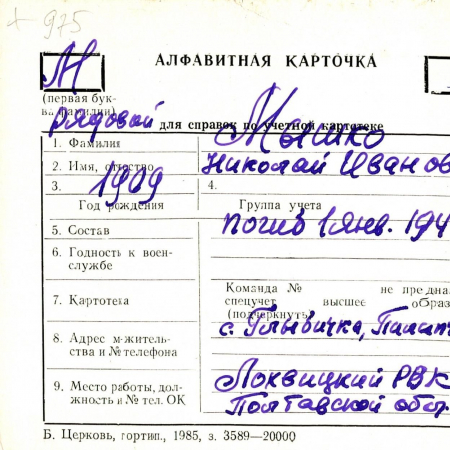 + 975
М
АЛФАВИТНАЯ КАРТОЧКА
(первая бук-
ва фамилии)
рядовой для справок по учетной картотеке
1. Фамилия Мышко
2. Имя, отчество Николай Иванов
3. 1909 4.
Год рождения Группа учета
5. Состав погиб 1 янв. 194
6. Годность к воен-
службе
Команда № не предна
7. Картотека спецучет высшее образ
(подчеркнуть)
8. Адрес м-житель-
ства и № телефона
с.
9. Место работы, дол-
жность и № тел. ОК
Лохвицкий РВК
Полтавской обл.
Б. Церковь, гортип., 1985, з. 3589—20000